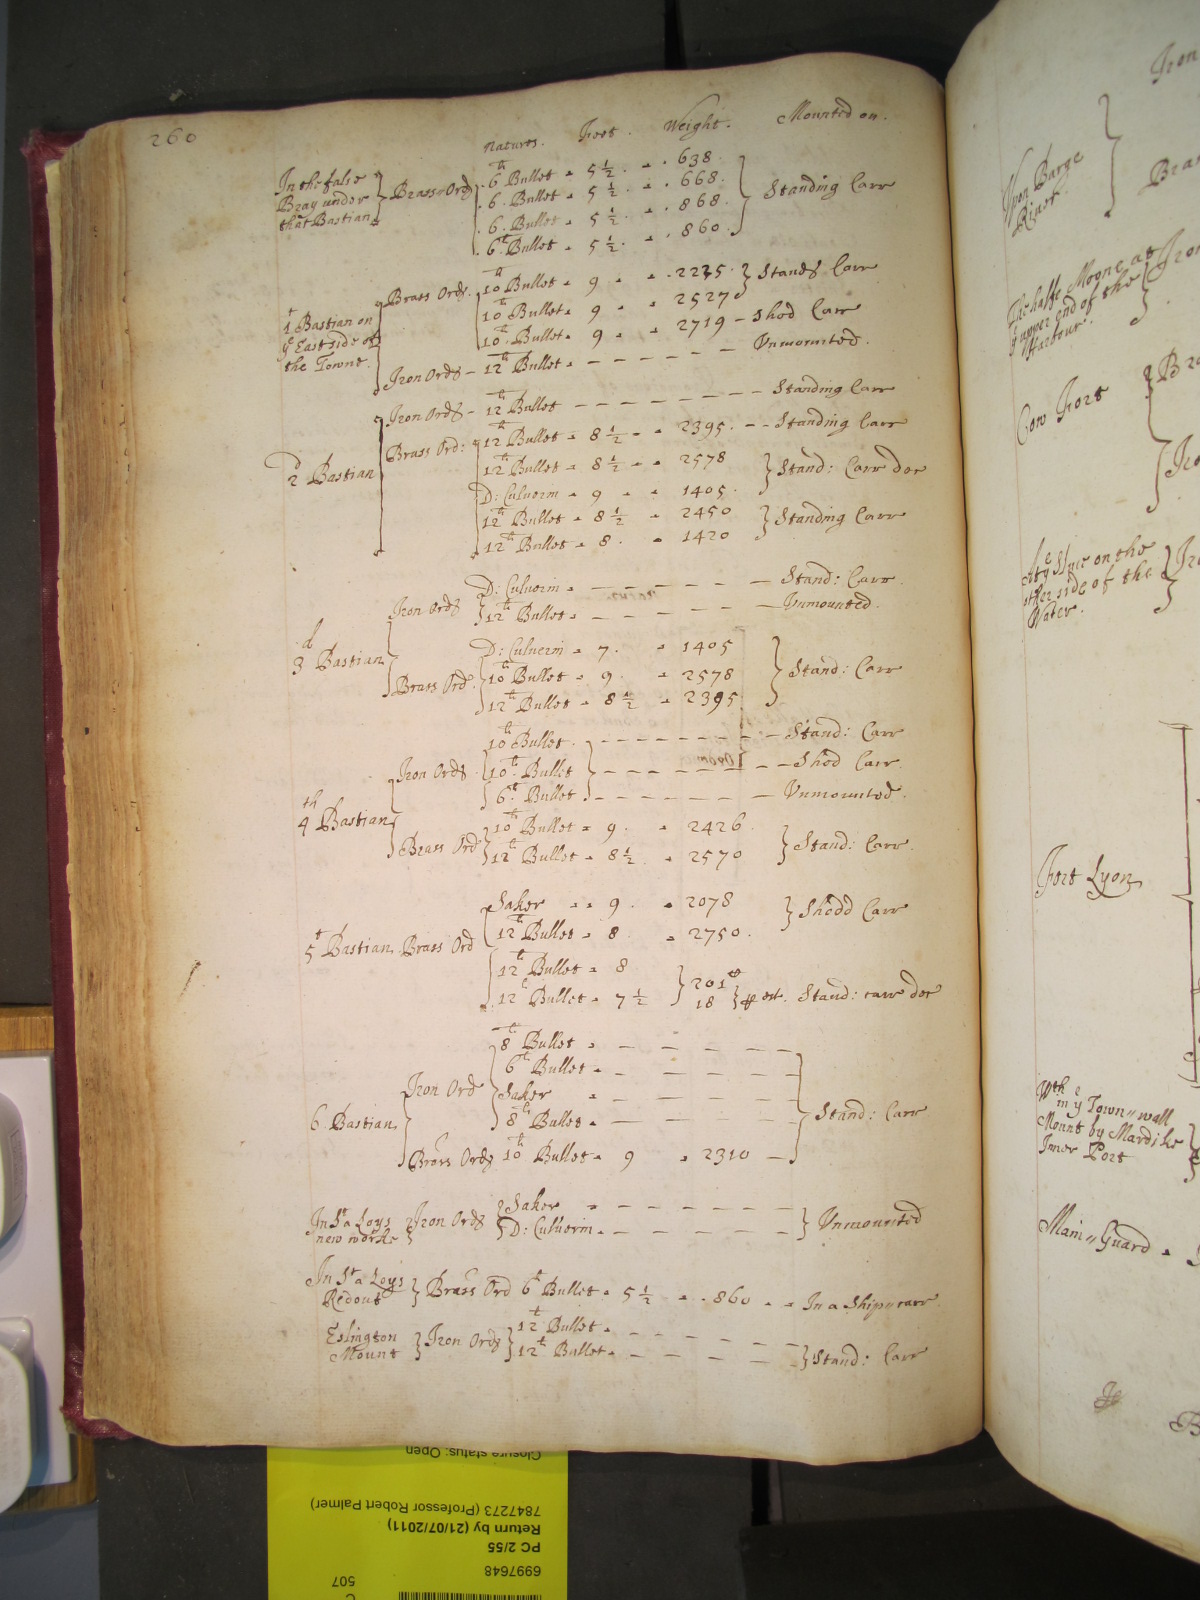 260
Natures. Foot. Weight. Mounted on.
In the false Bray under that Bastian } Brass Ord
6th Bullet - 5 1/2 - 638.
6. Bullet - 5 1/2 - 668.
6. Bullet - 5 1/2 - 868.
6th Bullet - 5 1/2 - 860. } Standing Carr
1t Bastian on ye East side of the Towne.
Brass Ords. 10th Bullet - 9 - 2275. } Stands Carr
10th Bullet - 9 - 2527
10th Bullet - 9 - 2719 - Shod Carr
Iron Ords - 12th Bullet - Unmounted.
2d Bastian
Iron Ords - 12th Bullet - Standing Carr
Brass Ord: 12th Bullet - 8 1/2 - 2395. - Standing Carr
12th Bullet - 8 1/2 - 2578 } Stand: Carr doe
D: Culverin - 9 - 1405.
12th Bullet - 8 1/2 - 2450 } Standing Carr
12th Bullet - 8. - 1420
3d Bastian
Iron Ords D: Culverin - Stand: Carr.
12th Bullet - Unmounted.
Brass Ord. D: Culverin - 7. - 1405
10th Bullet - 9. - 2578 } Stand: Carr
12th Bullet - 8 1/2 - 2395.
4th Bastian
10th Bullet. - Stand: Carr
Iron Ords 10th Bullet - Shod Carr.
6th Bullet - Unmounted.
Brass Ord 10th Bullet - 9. - 2426
12th Bullet - 8 1/2 - 2570 } Stand: Carr.
5t Bastian. Brass Ord
Saker - 9. - 2078 } Shodd Carr
12th Bullet - 8 - 2750.
12th Bullet - 8
12th Bullet - 7 1/2 } 201 18 Stand: carr doe
6 Bastian
Iron Ord
8th Bullet -
6th Bullet -
Saker -
8th Bullet - } Stand: Carr
Brass Ords 10th Bullet - 9 - 2310 -
In St a Loys new worke } Iron Ords
Saker -
D: Culverin - } Unmounted
In St a Loys Redout } Brass Ord 6th Bullet - 5 1/2 - 860 - - In a Ship carr
Eslington Mount } Iron Ords
12th Bullet -
12th Bullet - } Stand: Carr
Iron
Upon Barge
The halfe Moone at
ye upper end of the
Harbour.
Cow Fort
other side of the
Water.
Fort Lyon
Wthin ye Town wall
Mount by Mardike
Inner Port
Main Guard -
Closure status: Open
7847273 (Professor Robert Palmer)
Return by (21/07/2011)
PC 2/55
6997648
507